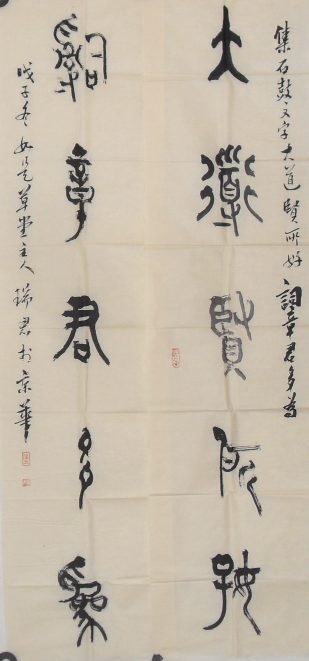 集石鼓文字大道賢所好詞章君多為
大道賢所好
詞章君多為
戊子冬如是草堂主人瑞君於京華